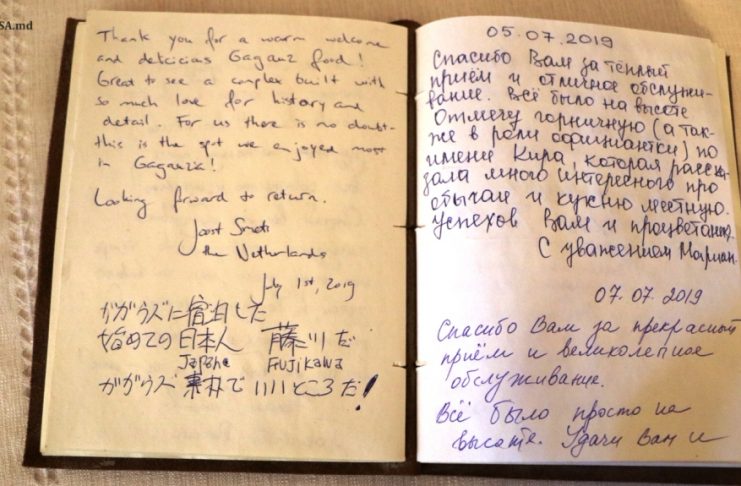 SA.md
Thank you for a warm welcome
and delicious Gagauz food!
Great to see a complex built with
so much love for history and
detail. For us there is no doubt-
this is the spot we enjoyed most
in Gagauzia!
Looking forward to return.
Joost Smets
the Netherlands
July 1st, 2019
ガガウズに宿泊した
始めての日本人 藤川だ
Japane FUJIKAWA
ガガウズ で いいところだ!
05.07.2019
Спасибо Вам за тёплый
приём и отличное обслужи-
вание. Всё было на высоте
Отмечу горничную (а так-
же в роли официантки) по
имени Кира, которая расск-
зала много интересного про
обычаи и кухню местную.
Успехов Вам и процветания.
С уважением Мариан.
07.07.2019
Спасибо Вам за прекрасный
приём и великолепное
обслуживание.
Всё было просто на
высоте. Удачи Вам и